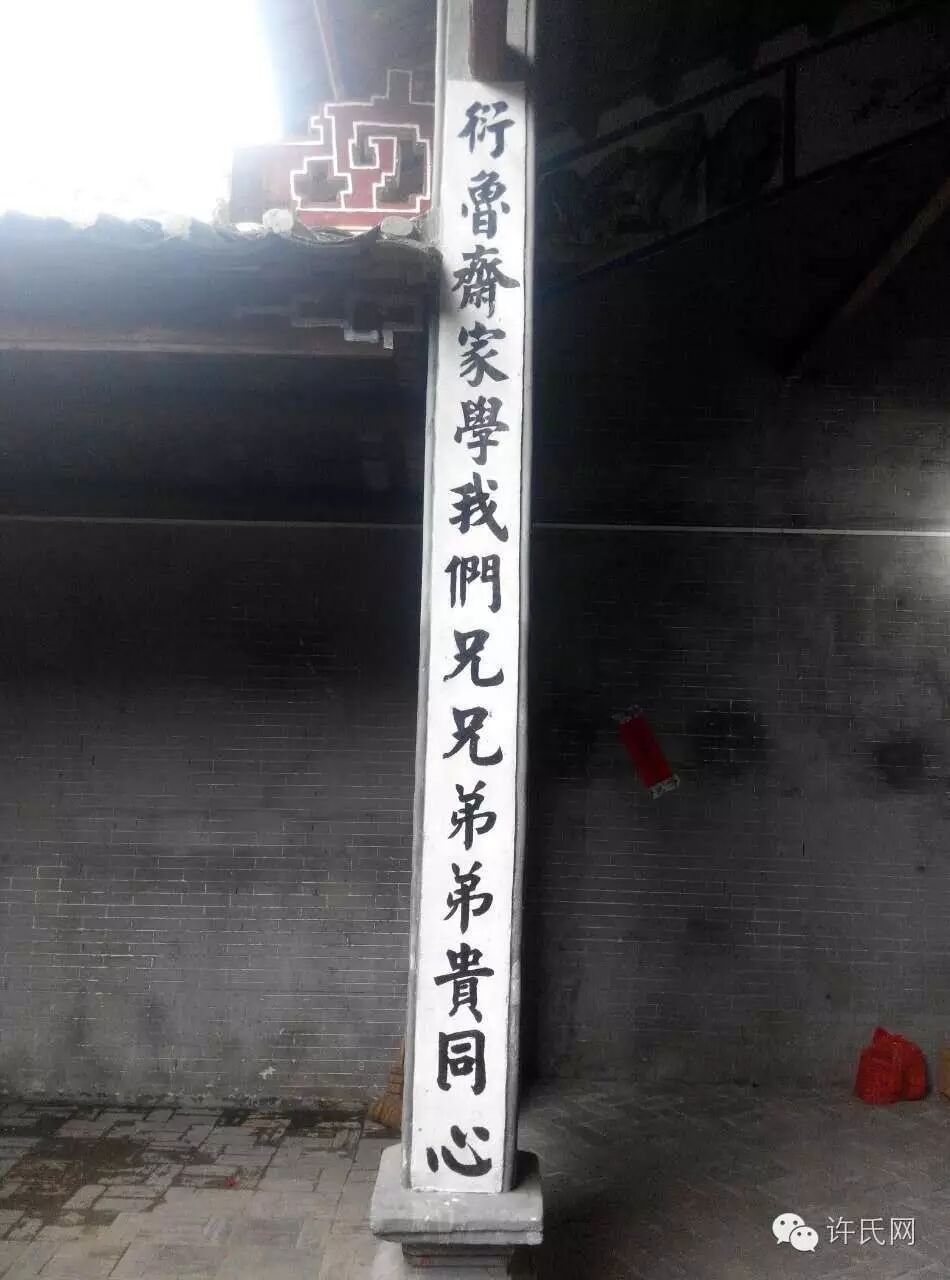 衍魯齋家學我們兄兄弟弟貴同心
许氏网